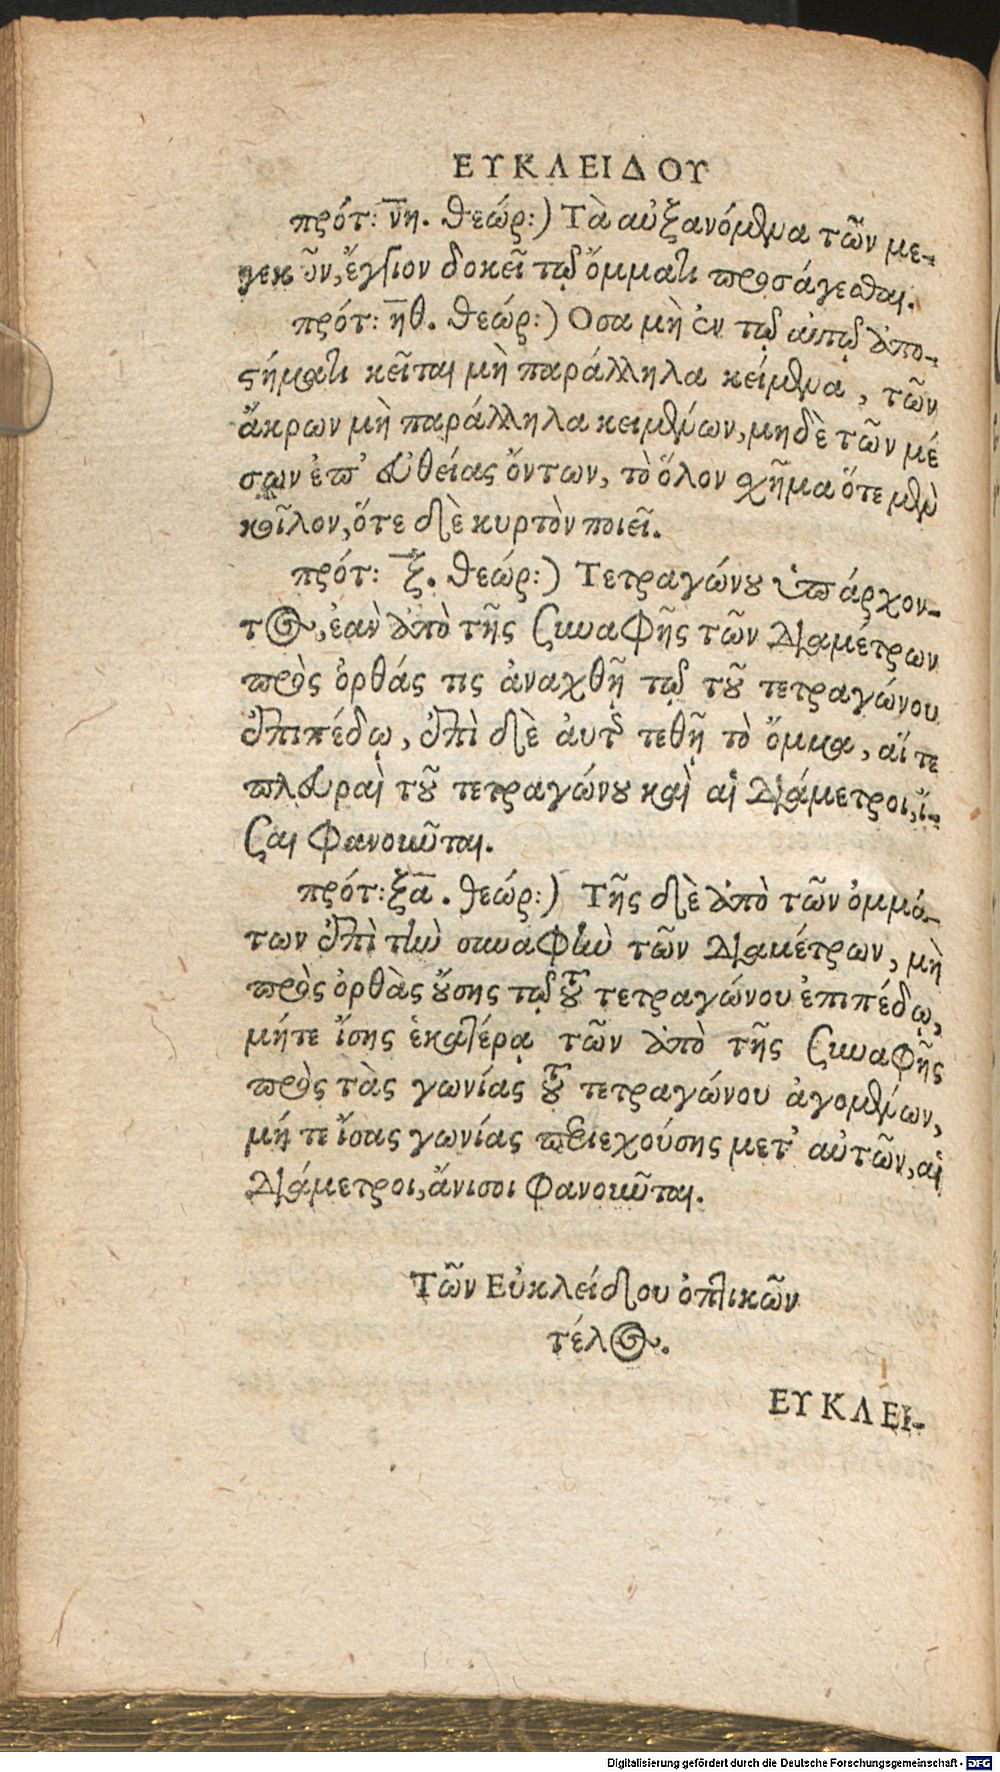 ΕΥΚΛΕΙΔΟΥ
πρότ: ν̅η. θεώρ:) Τὰ αὐξανόμενα τῶν με-
γεκῶν, ἔγγιον δοκεῖ τῷ ὄμματι προσάγεσθαι.
πρότ: η̅θ. θεώρ:) Οσα μὴ ἐν τῷ αὐτῷ ἀπο-
στήματι κεῖται μὴ παράλληλα κείμενα, τῶν
ἄκρων μὴ παράλληλα κειμένων, μηδὲ τῶν μέ
σων ἐπ' εὐθείας ὄντων, τὸ ὅλον σχῆμα ὅτε μὲν
κοῖλον, ὅτε δὲ κυρτὸν ποιεῖ.
πρότ: ξ̅. θεώρ:) Τετραγώνου ὑπάρχον-
τος, ἐὰν ἀπὸ τῆς συναφῆς τῶν διαμέτρων
πρὸς ὀρθάς τις ἀναχθῇ τῷ τοῦ τετραγώνου
ἐπιπέδῳ, ἐπὶ δὲ αὐτῆς τεθῇ τὸ ὄμμα, αἵ τε
πλευραὶ τοῦ τετραγώνου καὶ αἱ διάμετροι, ἴ-
σαι φανοῦνται.
πρότ: ξ̅α̅. θεώρ:) Τῆς δὲ ἀπὸ τῶν ὀμμά-
των ἐπὶ τὴν συναφὴν τῶν διαμέτρων, μὴ
πρὸς ὀρθὰς οὔσης τῷ τοῦ τετραγώνου ἐπιπέδῳ,
μήτε ἴσης ἑκατέρᾳ τῶν ἀπὸ τῆς συναφῆς
πρὸς τὰς γωνίας τοῦ τετραγώνου ἀγομένων,
μή τε ἴσας γωνίας περιεχούσης μετ' αὐτῶν, αἱ
διάμετροι, ἄνισοι φανοῦνται.
Τῶν Εὐκλείδου ὀπτικῶν
τέλος.
ΕΥΚΛΕΙ-
Digitalisierung gefördert durch die Deutsche Forschungsgemeinschaft - DFG